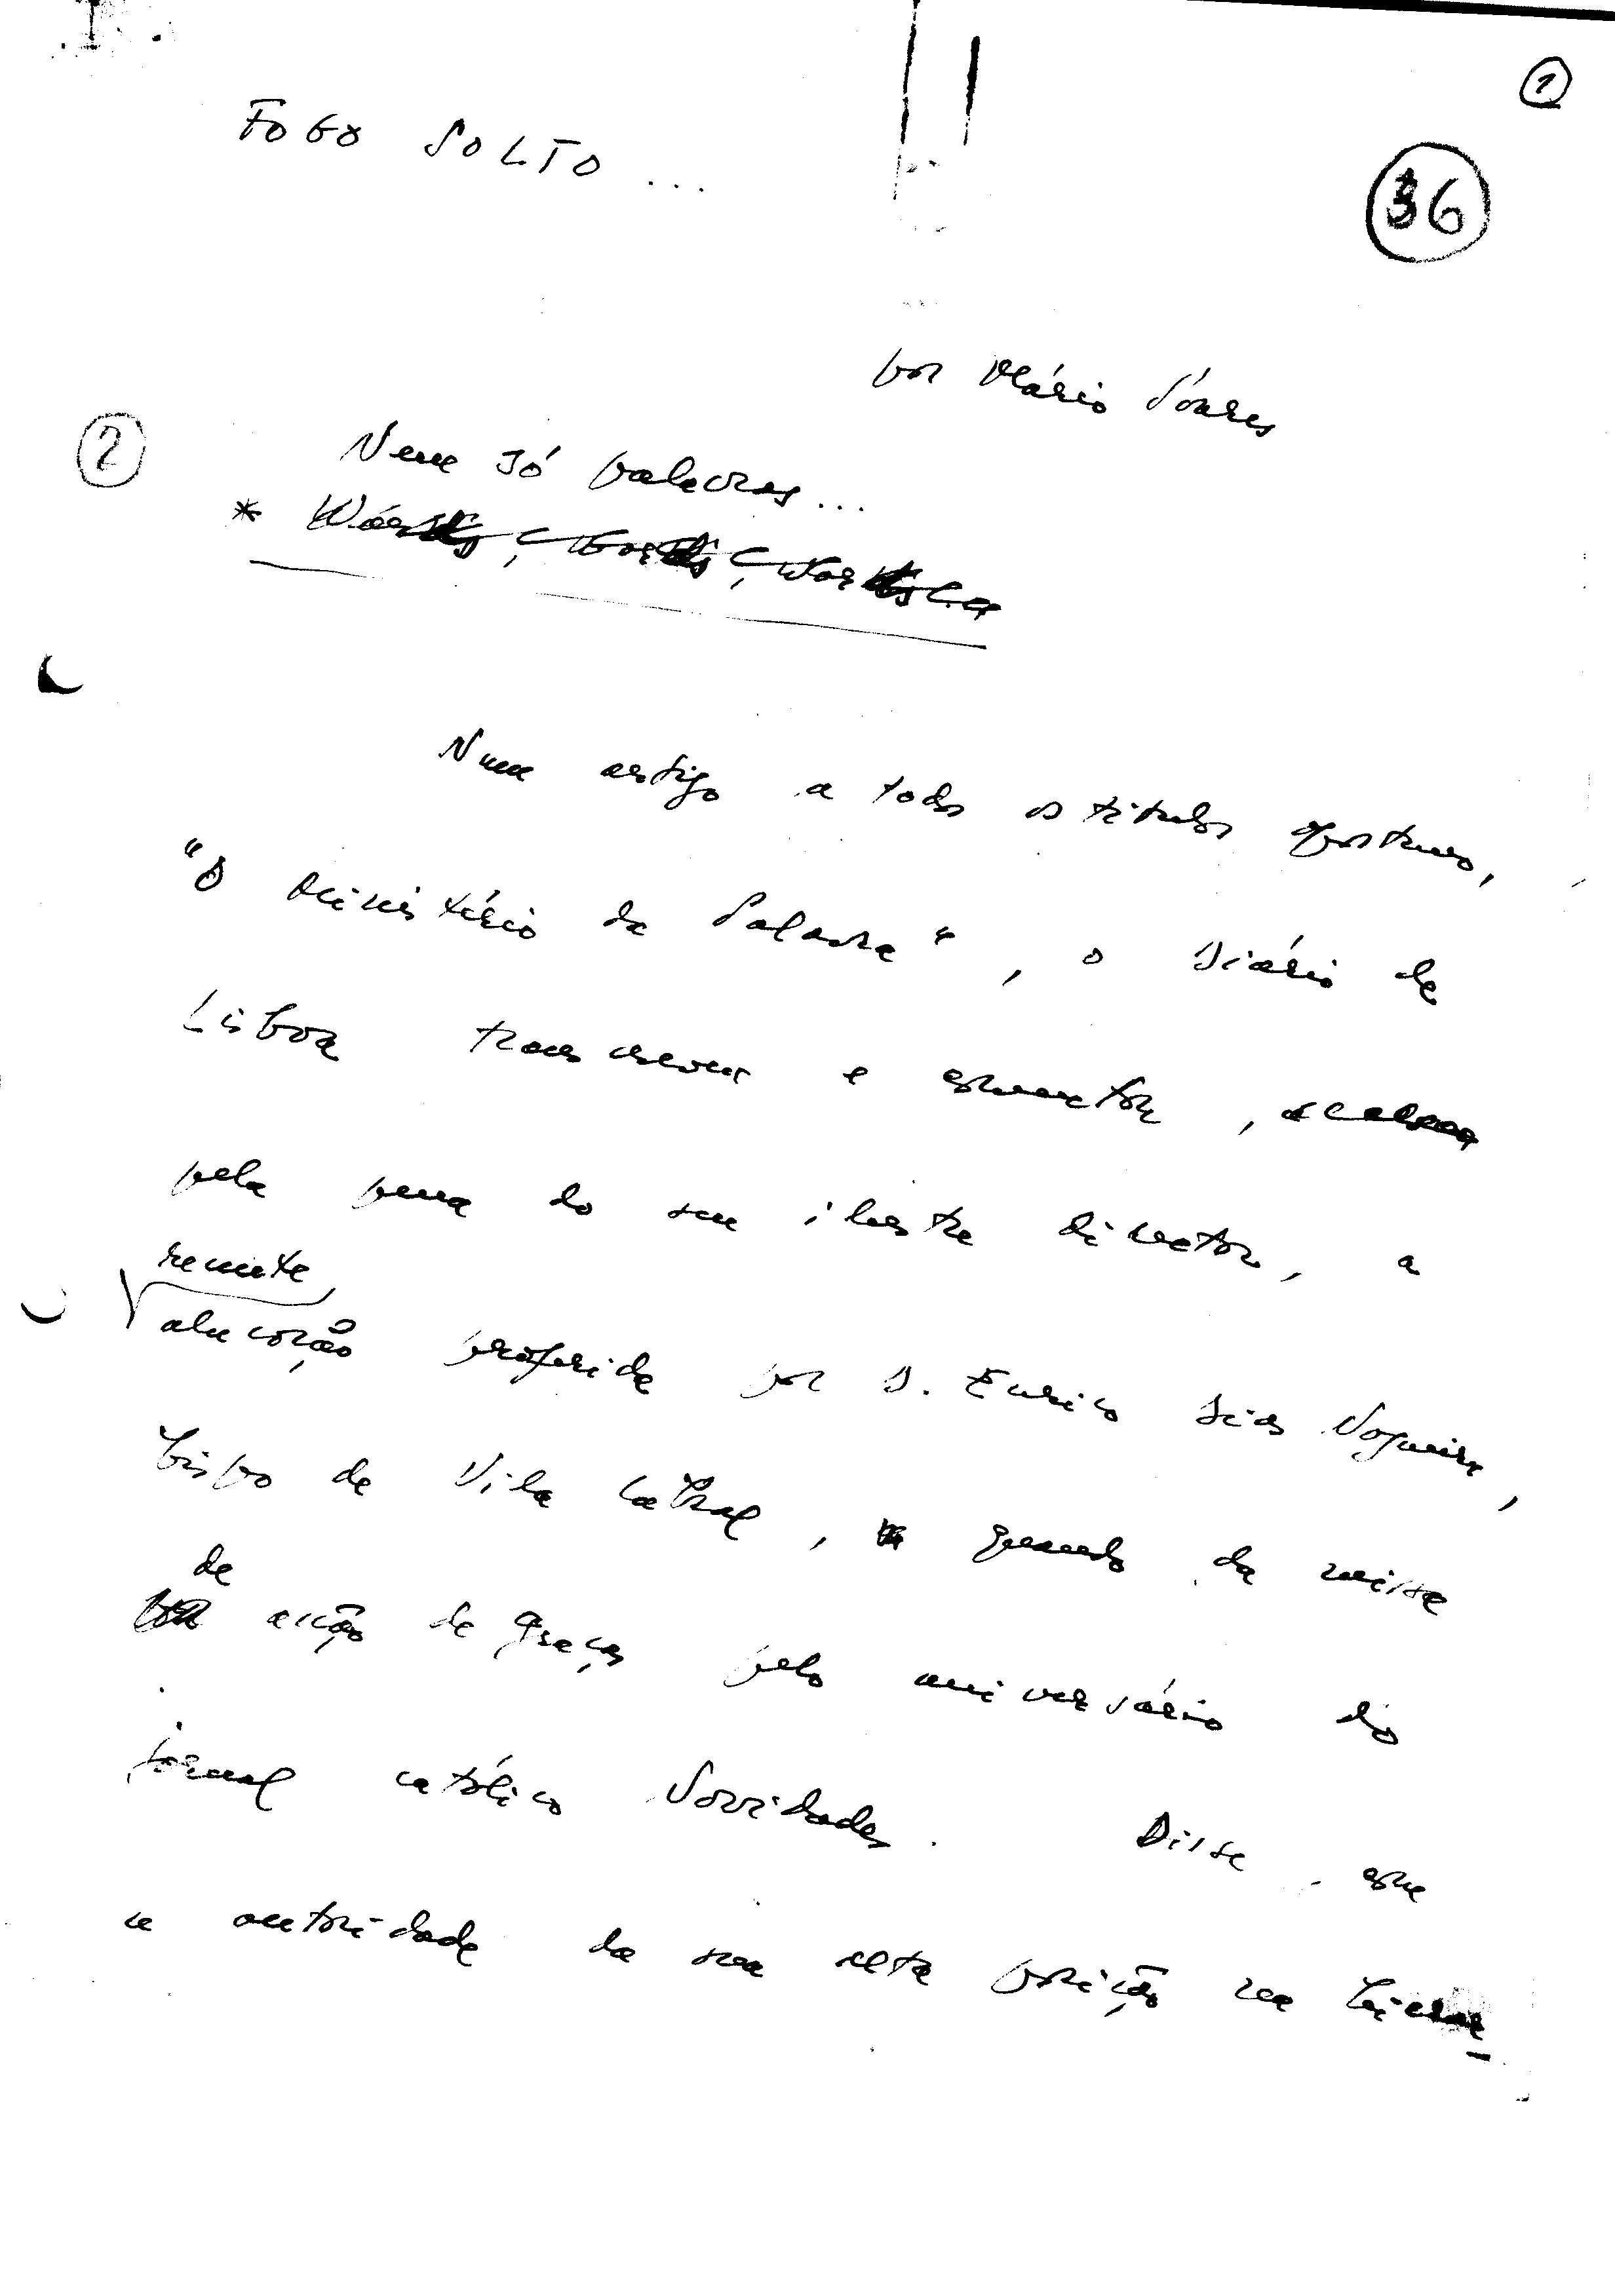 1
FOGO SOLTO...
36
por Mário Soares
2
Nem só palavras...
* Words, words, words...
Num artigo a todos os títulos oportuno,
"O Ministério da Palavra", o Diário de
Lisboa transcreveu e comentou,
pela pena do seu ilustre director, a
recente
alocução proferida por D. Eurico Dias Nogueira,
bispo de Vila Cabral, quando da missa
de
acção de graças pelo aniversário do
jornal católico Novidades. Disse, com
a autoridade da sua alta posição na hierar-